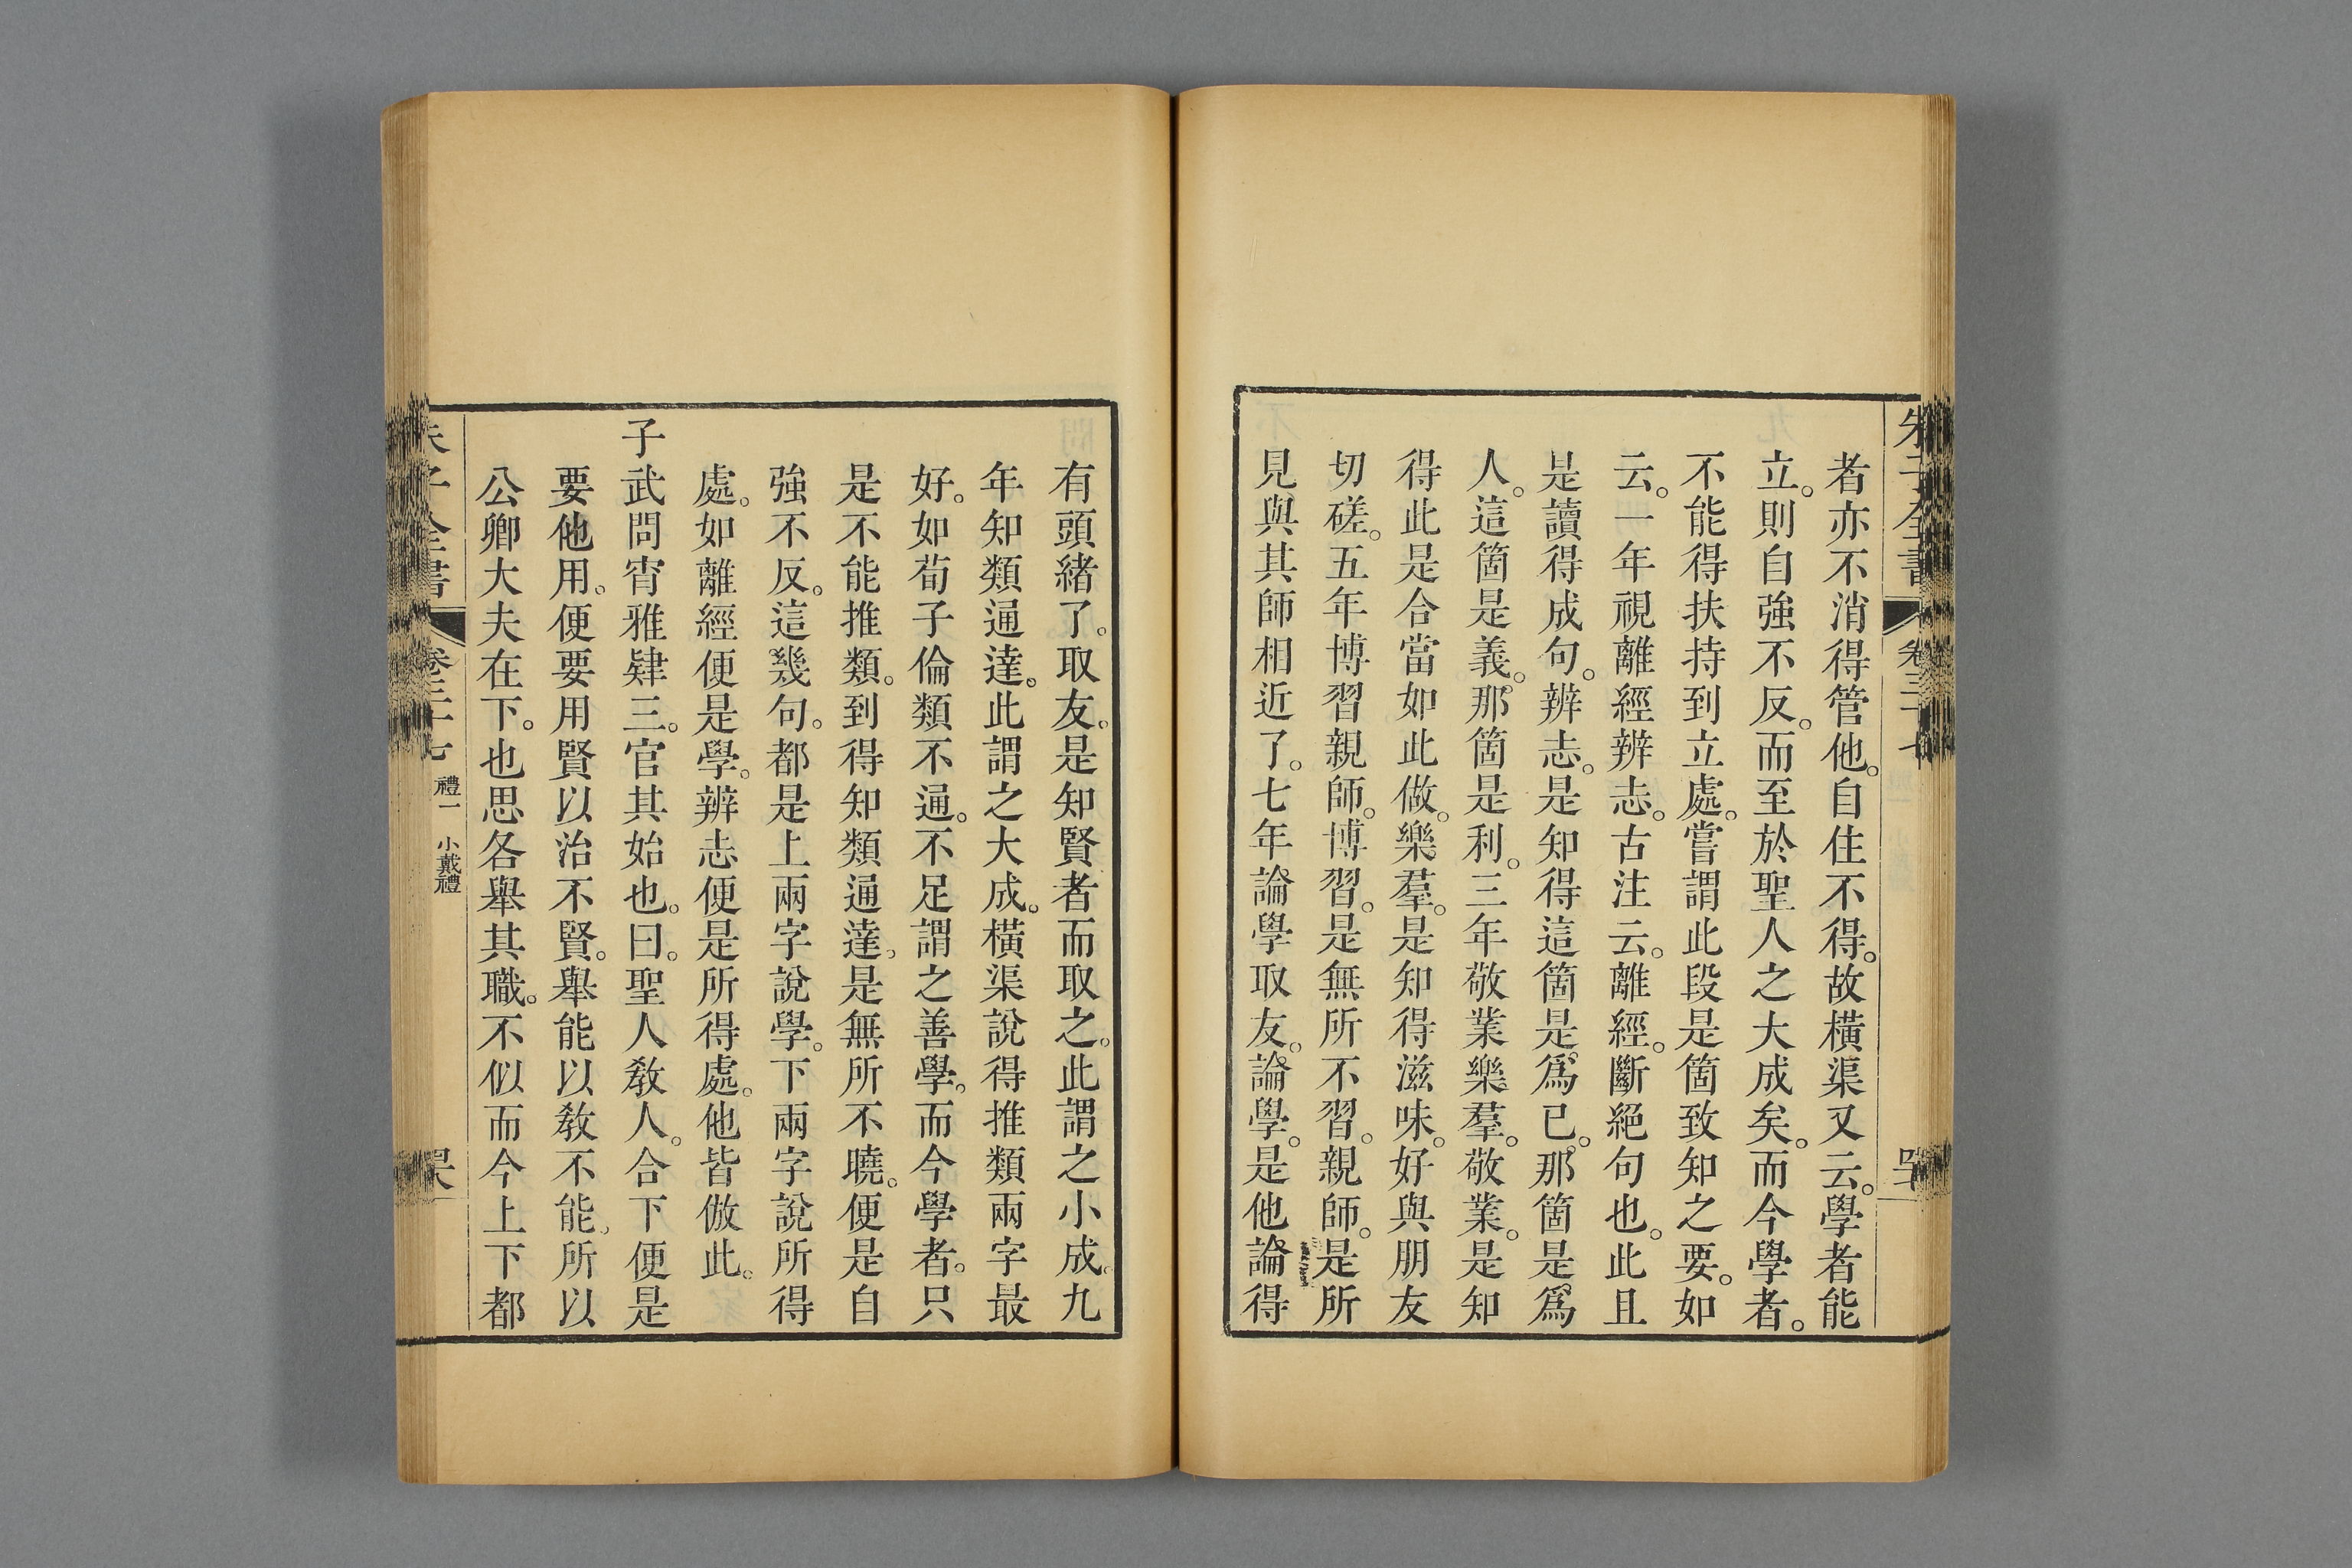 者亦不消得管他。自住不得。故橫渠又云。學者能
立。則自強不反。而至於聖人之大成矣。而今學者。
不能得扶持到立處。嘗謂此段是箇致知之要。如
云。一年視離經辨志。古注云。離經。斷絕句也。此且
是讀得成句。辨志。是知得這箇是爲己。那箇是爲
人。這箇是義。那箇是利。三年敬業樂羣。敬業。是知
得此是合當如此做。樂羣。是知得滋味。好與朋友
切磋。五年博習親師。博習。是無所不習。親師。是所
見與其師相近了。七年論學取友。論學。是他論得
有頭緒了。取友。是知賢者而取之。此謂之小成。九
年知類通達。此謂之大成。橫渠說得推類兩字最
好。如荀子倫類不通。不足謂之善學。而今學者。只
是不能推類。到得知類通達。是無所不曉。便是自
強不反。這幾句。都是上兩字說學。下兩字說所得
處。如離經便是學。辨志便是所得處。他皆倣此。
子武問宵雅肄三。官其始也。曰。聖人敎人。合下便是
要他用。便要用賢以治不賢。舉能以敎不能。所以
公卿大夫在下。也思各舉其職。不似而今上下都
朱子全書 卷三十七 禮一 小戴禮